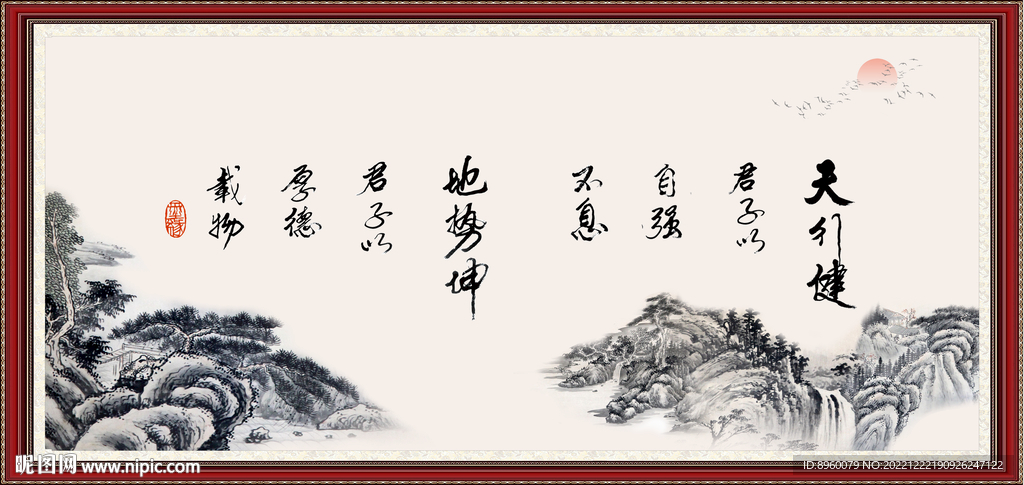 天行健
君子以
自强
不息
地势坤
君子以
厚德
载物
昵图网 www.nipic.com
ID:8960079 NO:20221222190926247122